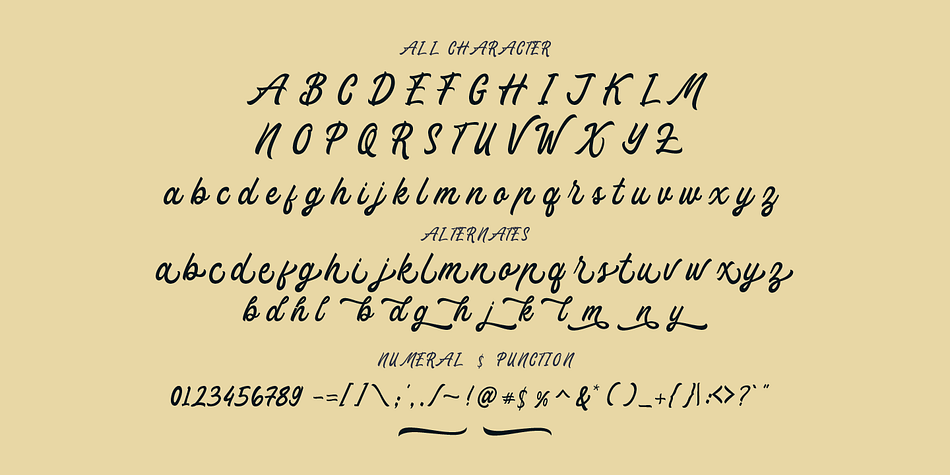 ALL CHARACTER
A B C D E F G H I J K L M
N O P Q R S T U V W X Y Z
a b c d e f g h i j k l m n o p q r s t u v w x y z
ALTERNATES
a b c d e f g h i j k l m n o p q r s t u v w x y z
b d h l b d g h j k l m n y
NUMERAL $ PUNCTION
0123456789 -=[]\;',./~!@#$%^&*()_+{}|:<>?`"